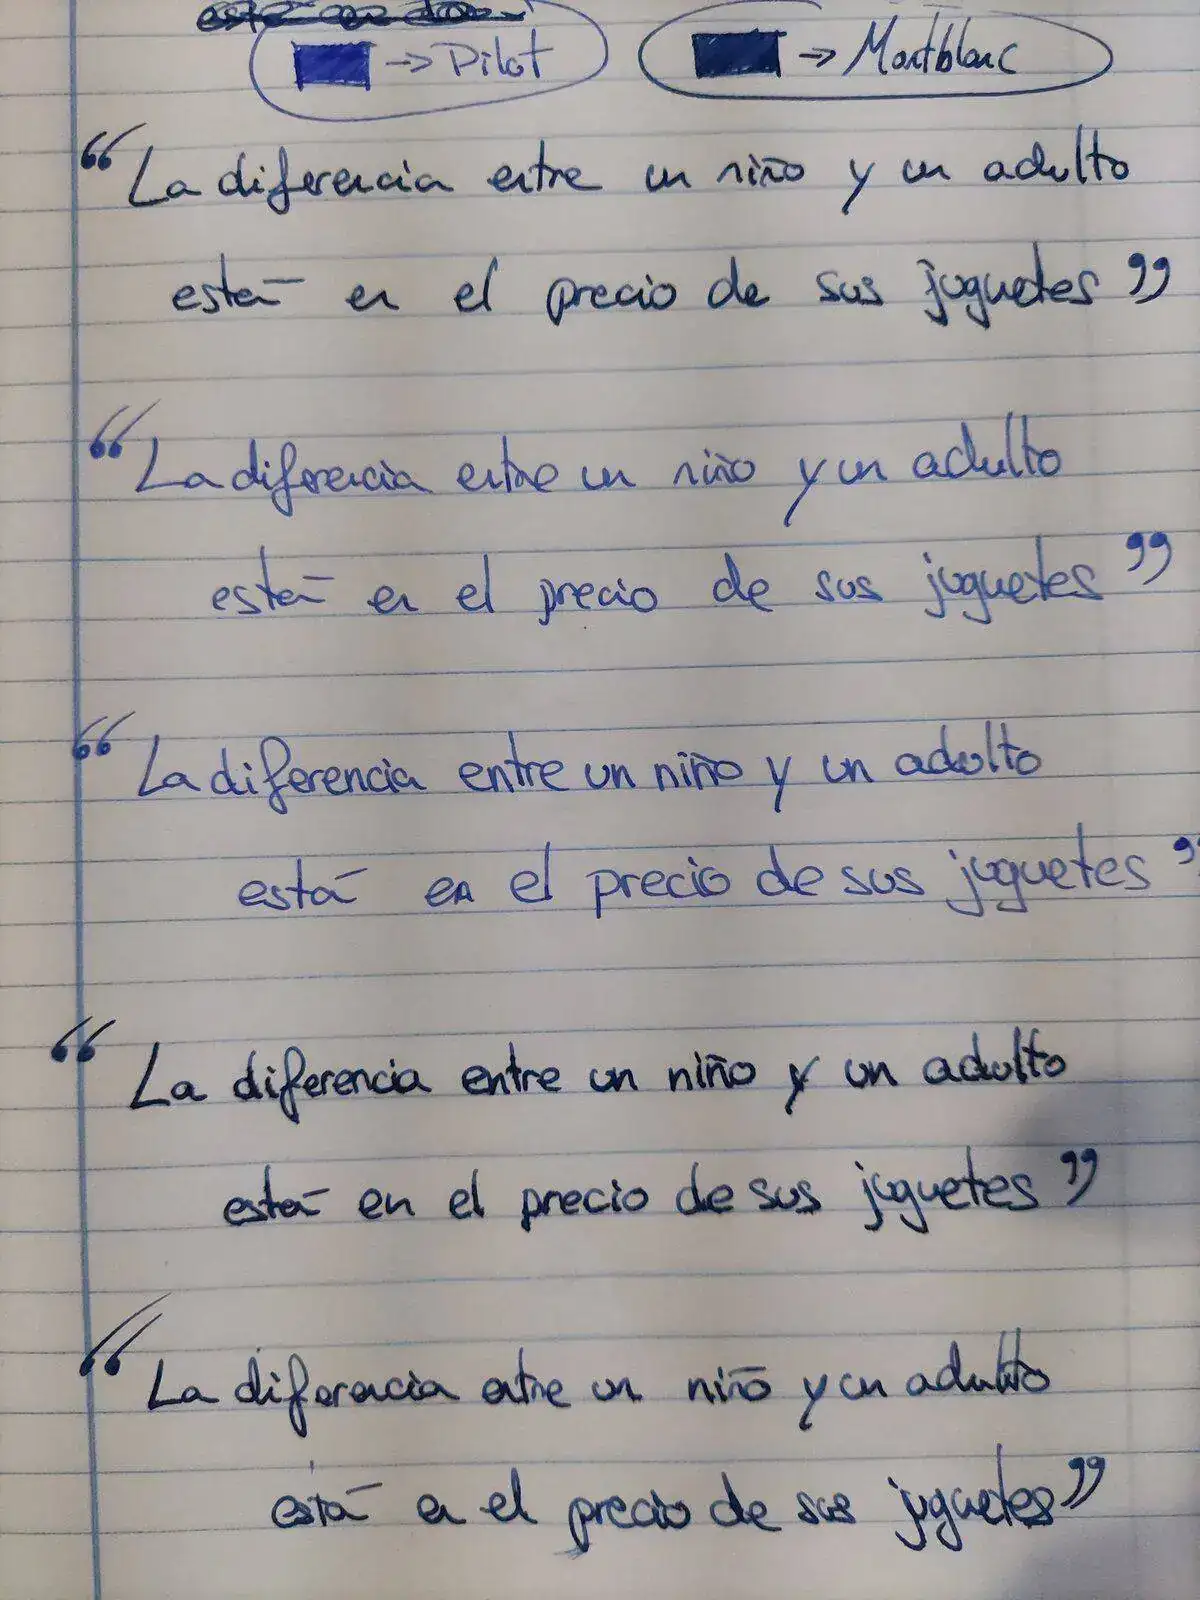 → Pilot → Montblanc
“La diferencia entre un niño y un adulto
está en el precio de sus juguetes”
“La diferencia entre un niño y un adulto
está en el precio de sus juguetes”
“La diferencia entre un niño y un adulto
está en el precio de sus juguetes”
“La diferencia entre un niño y un adulto
está en el precio de sus juguetes”
“La diferencia entre un niño y un adulto
está en el precio de sus juguetes”